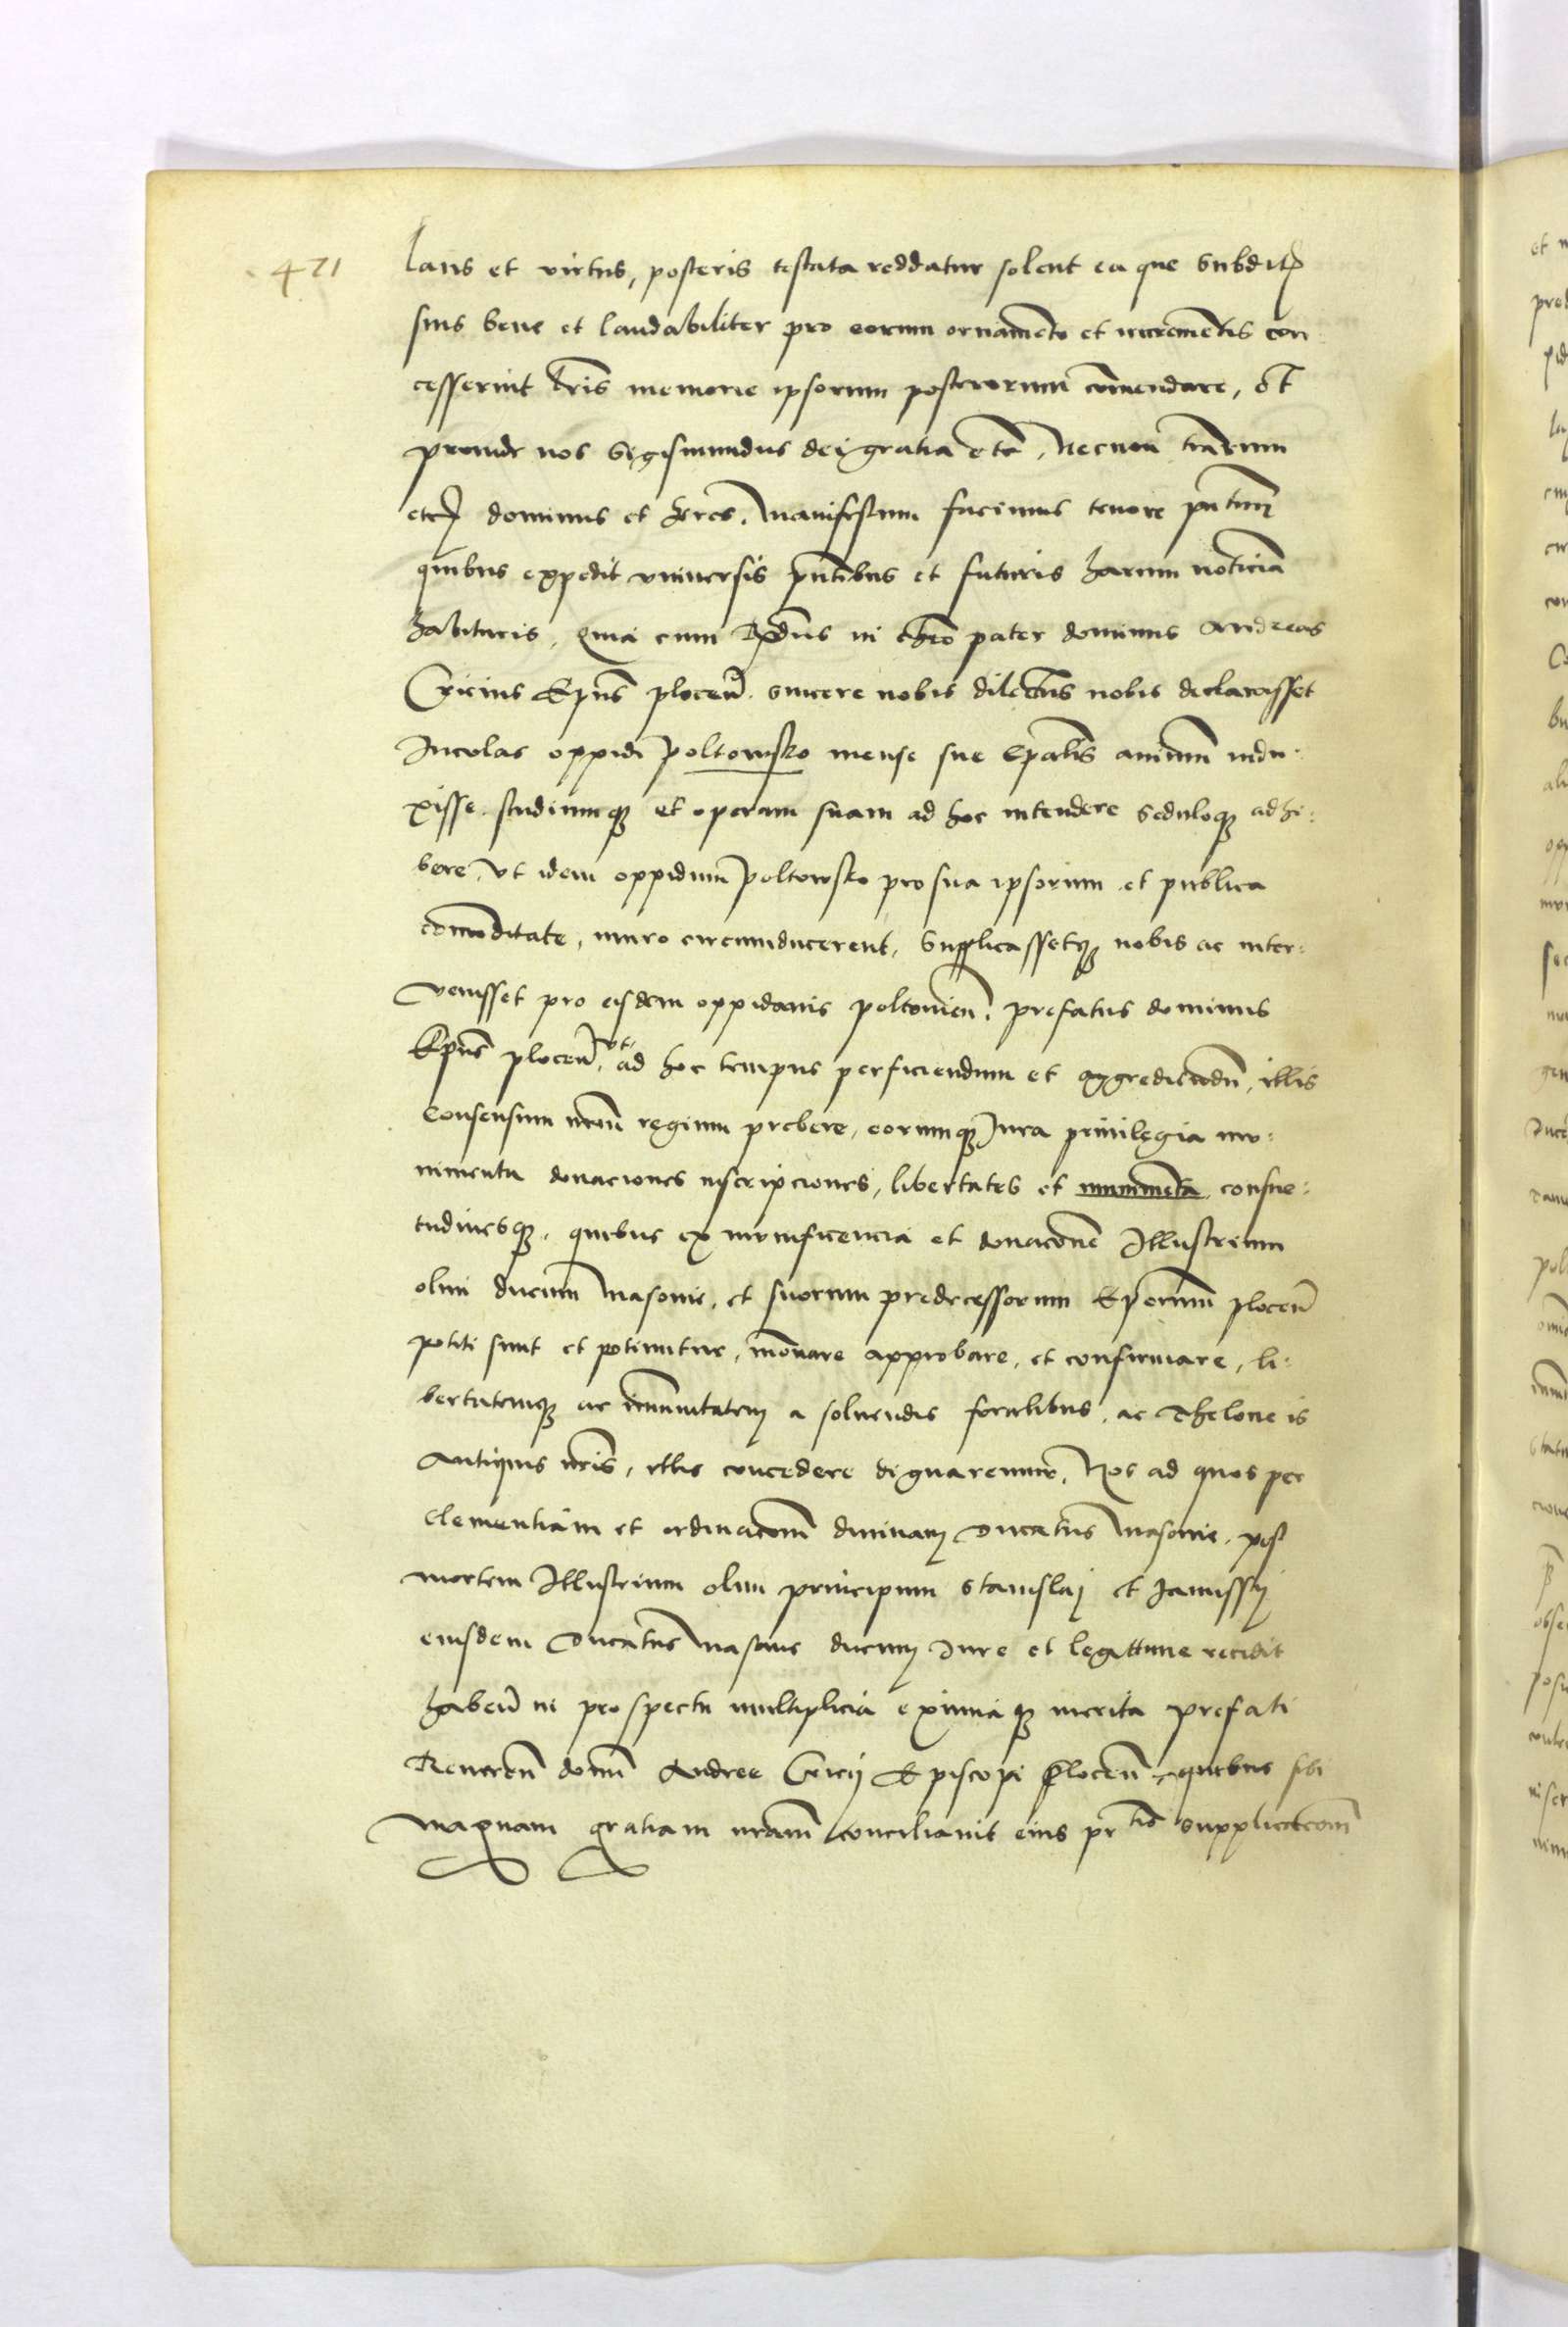 421
laus et virtus, posteris testata reddatur solent ea que subdit(is)
suis bene et laudabiliter pro eorum ornamento et incrementis con
cesserint lr̃is memorie ipsorum posterorum com̃endare,
proinde nos Sigismundus dei gratia etc̃. Necnon trarum
etc̃ dominus et heres. Manifestum facimus tenore pñtium
quibus expedit vniuersis pñtibus et futuris harum noticiã
habituris, Quia cum R̃dus in chro pater dominus Andreas
Cricius Ep̃us plocen̄. sincere nobis dilectus nobis declarasset
Incolas oppidi Poltowsko mense sue Ep̃alis animum indu:
xisse studiumq3 et operam suam ad hoc intendere seduloq3 adhi:
bere, vt idem oppidum Poltowsko pro sua ipsorum et publica
com̃oditate, muro circumducerent, Supplicassetq3 nobis ac inter:
venisset pro eisdem oppidanis poltouien̄. prefatus dominus
Ep̃us plocen̄, vt ad hoc tempus perficiendum et aggrediendũ, illis
consensum nr̃um regium prebere, eorumq3 Jura priuilegia mu:
nimenta donaciones inscripciones, libertates et munimenta consue:
tudinesq3. quibus ex munificencia et donacione Illustrium
olim ducum Masouie, et suorum predecessorum Ep̃orum plocen̄
potiti sunt et potiuntur, in̄ouare approbare, et confirmare, li:
bertatemq3 ac im̃unitatem a soluendis foralibus, ac Theloneis
Antiquis nr̃is, illis concedere dignaremur. Nos ad quos per
clementiam et ordinacionem diuinam Ducatus Masouie, post
mortem Illustrium olim principum Stanislaj et Janussij
eiusdem Ducatus Masouie ducum Jure et legittime recidit
haben̄ in prospectu multiplicia eximiaq3 merita prefati
Reueren̄ domini Andree Cricij Episcopi Plocen̄ quibus sibi
magnam gratiam nr̃am conciliauit eius supplicacionem